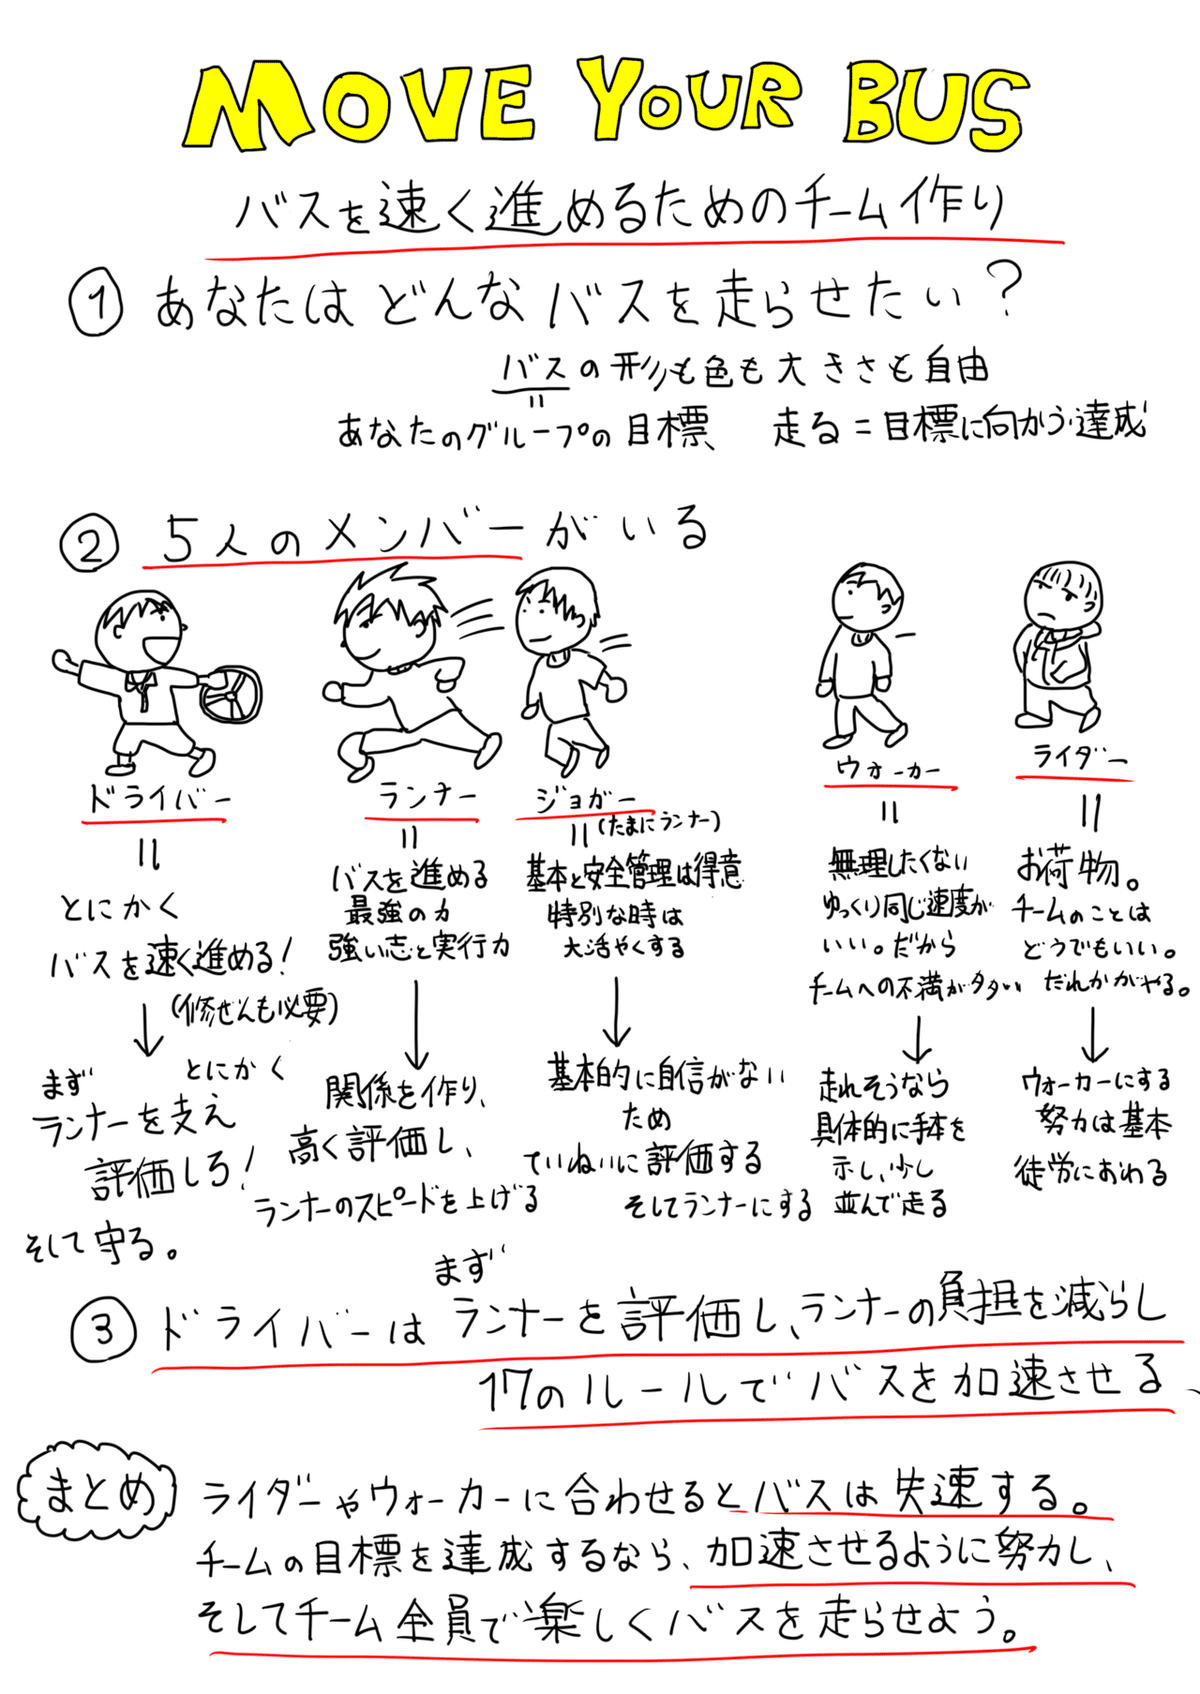 MOVE YOUR BUS
バスを速く進めるためのチーム作り
① あなたはどんなバスを走らせたい?
バスの形も色も大きさも自由
=
あなたのグループの目標、 走る=目標に向かう・達成
② 5人のメンバーがいる
ドライバー
=
とにかく
バスを速く進める!
(修ぜんも必要)
↓
まず とにかく
ランナーを支え
評価しろ!
そして守る。
ランナー
=
バスを進める
最強の力
強い志と実行力
↓
関係を作り、
高く評価し、
ランナーのスピードを上げる
ジョガー
= (たまにランナー)
基本と安全管理は得意
特別な時は
大活やくする
↓
基本的に自信がない
ため
ていねいに評価する
そしてランナーにする
ウォーカー
=
無理したくない
ゆっくり同じ速度が
いい。だから
チームへの不満が多い
↓
走れそうなら
具体的に手本を
示し、少し
並んで走る
ライダー
=
お荷物。
チームのことは
どうでもいい。
だれかがやる。
↓
ウォーカーにする
努力は基本
徒労におわる
まず
③ ドライバーはランナーを評価し、ランナーの負担を減らし
17のルールでバスを加速させる、
まとめ
ライダーやウォーカーに合わせるとバスは失速する。
チームの目標を達成するなら、加速させるように努力し、
そしてチーム全員で楽しくバスを走らせよう。